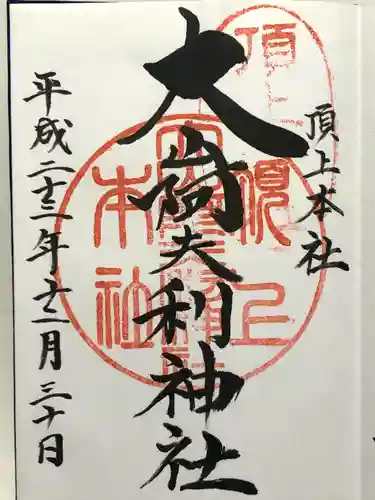 頂上本社
大山阿夫利神社
平成二十三年十二月三十日
頂上
本社